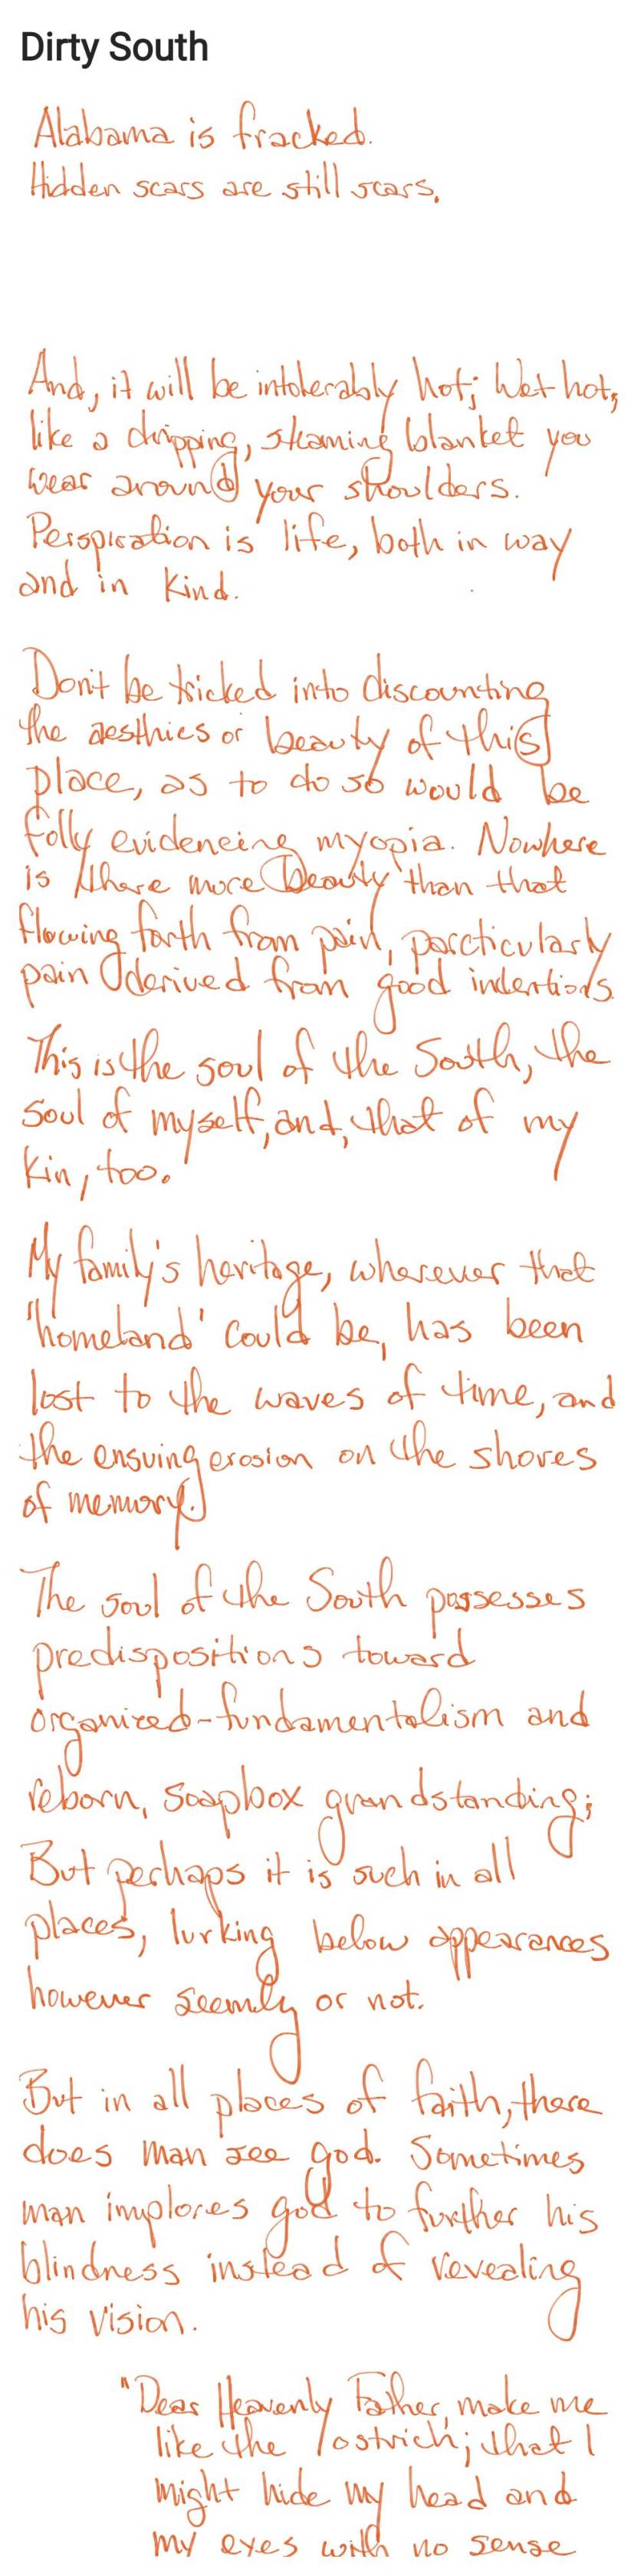 Dirty South
Alabama is fracked.
Hidden scars are still scars.
And, it will be intolerably hot; Wet hot,
like a dripping, steaming blanket you
wear around your shoulders.
Perspiration is life, both in way
and in kind.
Don't be tricked into discounting
the aesthics or beauty of this
place, as to do so would be
folly evidencing myopia. Nowhere
is there more beauty than that
flowing forth from pain, particularly
pain derived from good intentions.
This is the soul of the South, the
soul of myself, and, that of my
kin, too.
My family's heritage, wherever that
'homeland' could be, has been
lost to the waves of time, and
the ensuing erosion on the shores
of memory.
The soul of the South possesses
predispositions toward
organized-fundamentalism and
reborn, soapbox grandstanding;
But perhaps it is such in all
places, lurking below appearances
however seemly or not.
But in all places of faith, there
does man see god. Sometimes
man implores god to further his
blindness instead of revealing
his vision.
"Dear Heavenly Father, make me
like the ostrich; that I
might hide my head and
my eyes with no sense